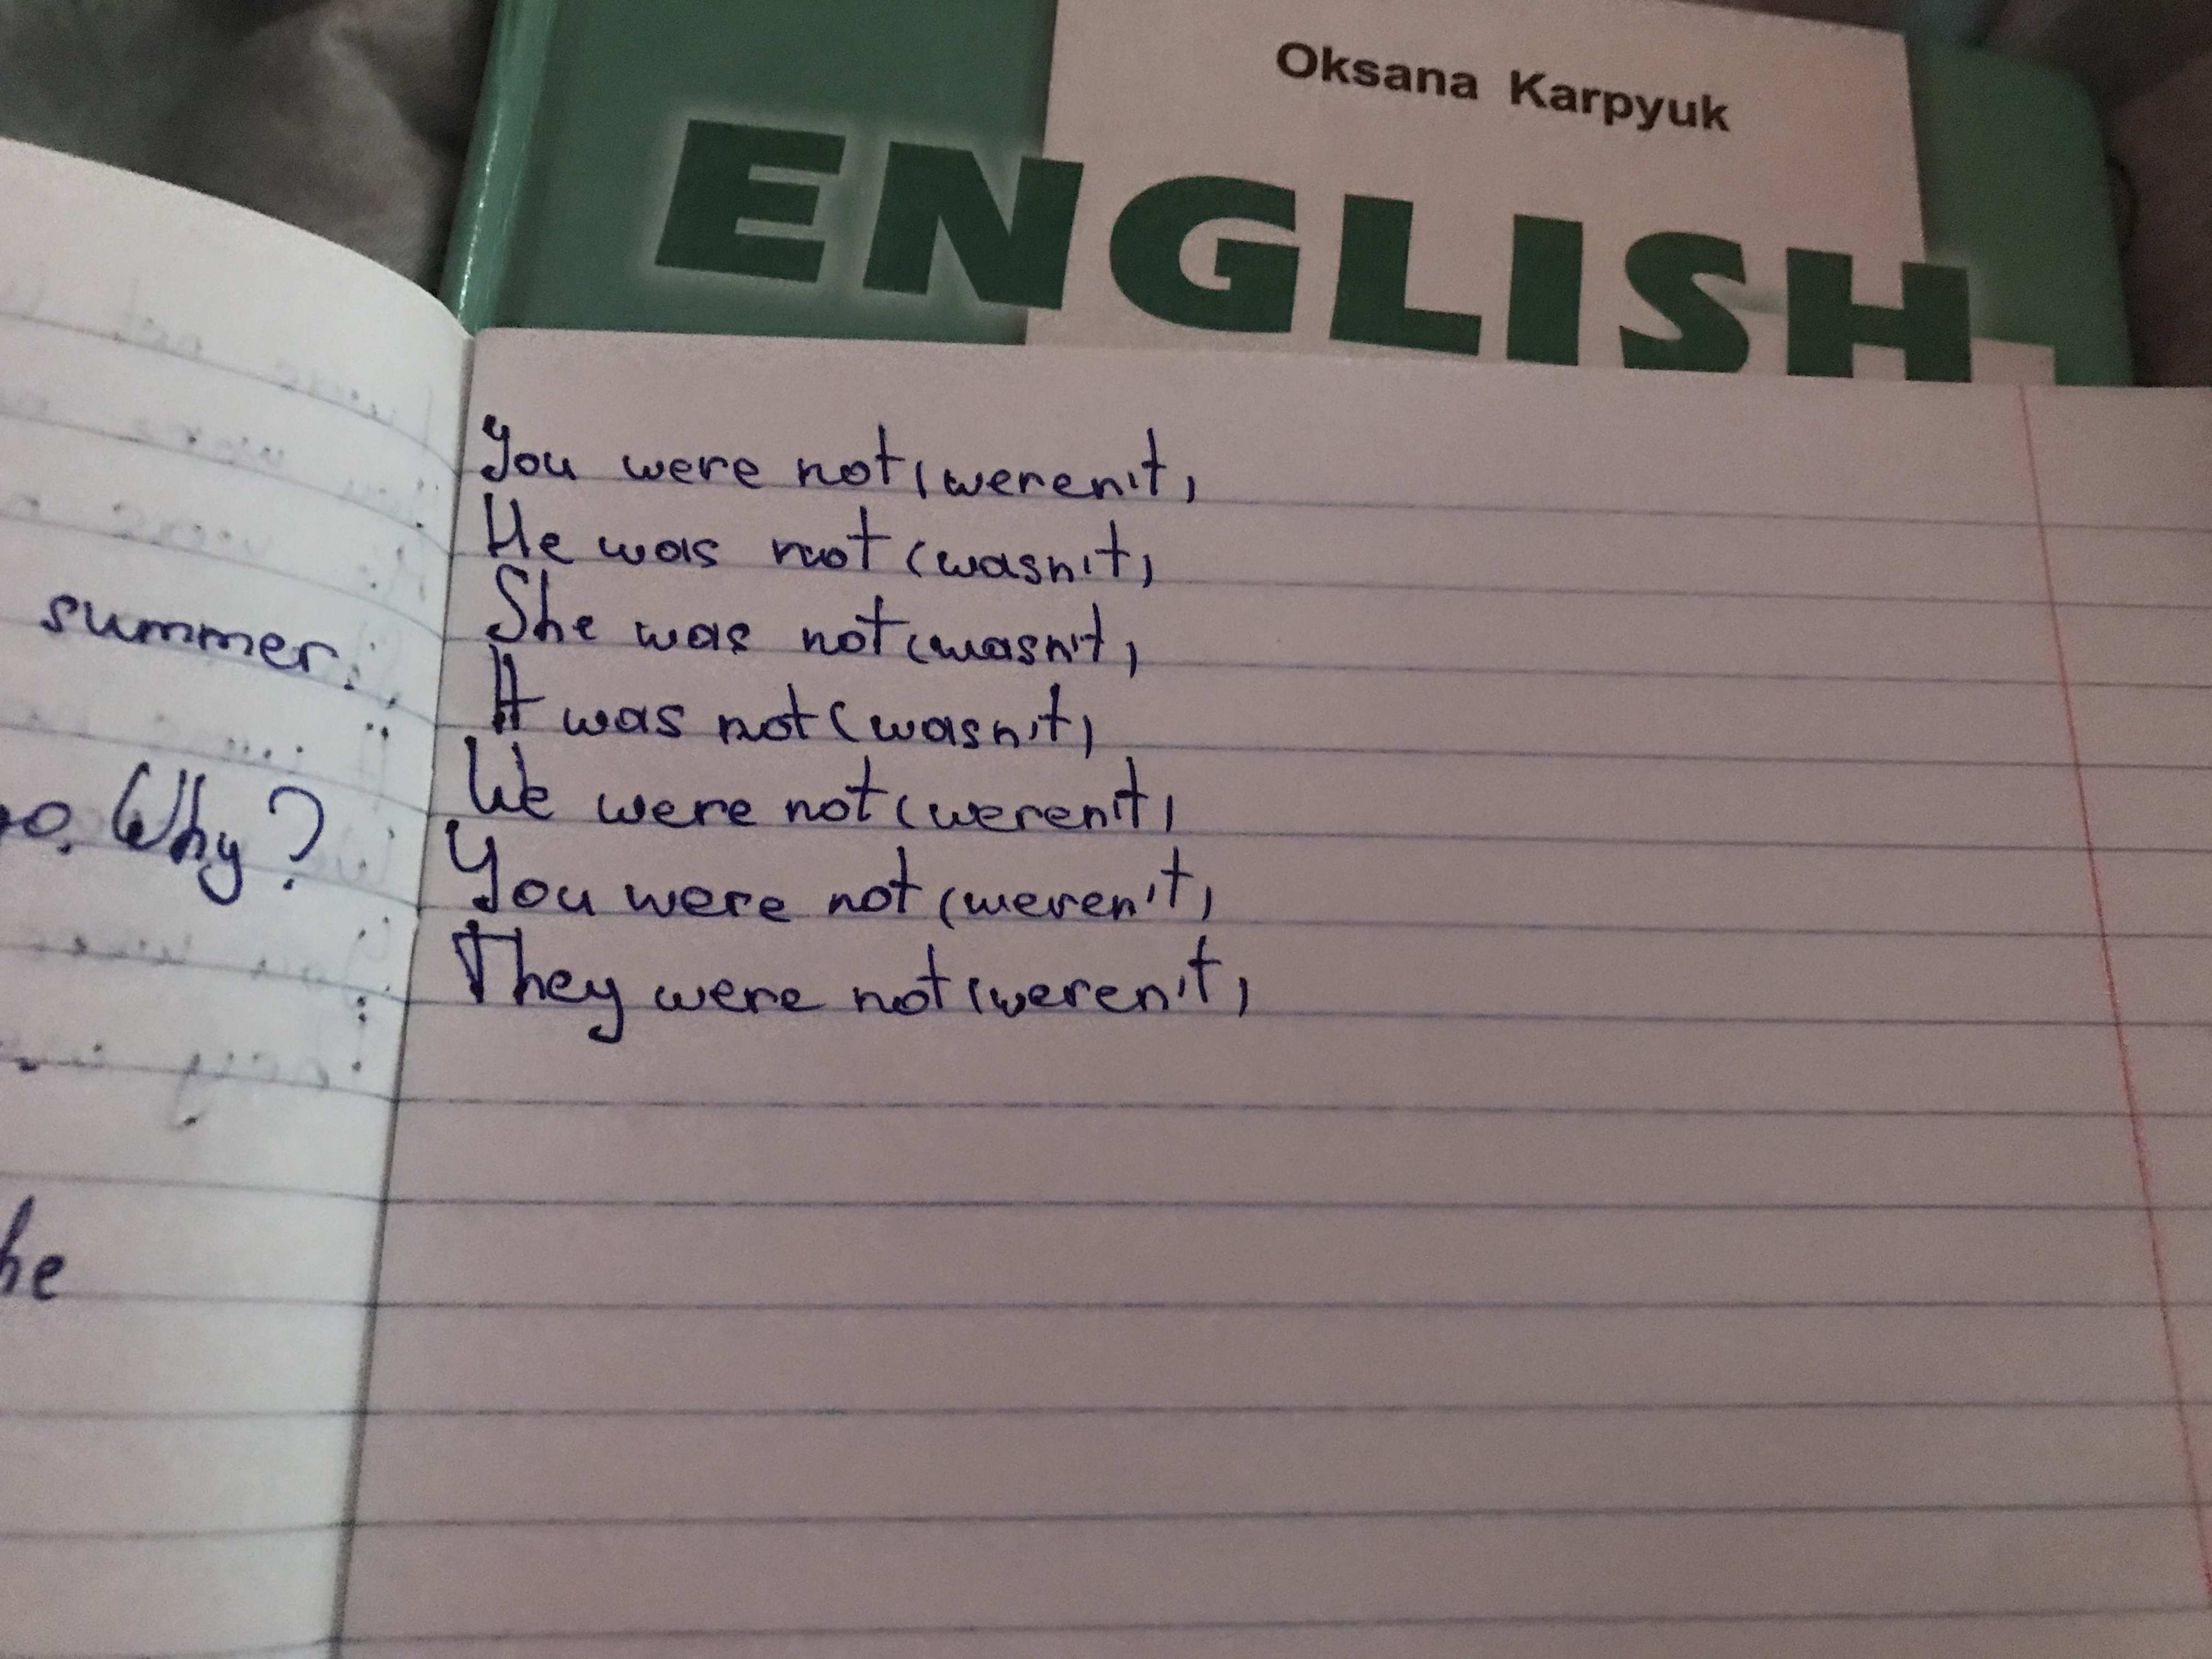 Oksana Karpyuk
ENGLISH
summer.
Why?
he
You were not (weren't)
He was not (wasn't)
She was not (wasn't)
It was not (wasn't)
We were not (weren't)
You were not (weren't)
They were not (weren't)